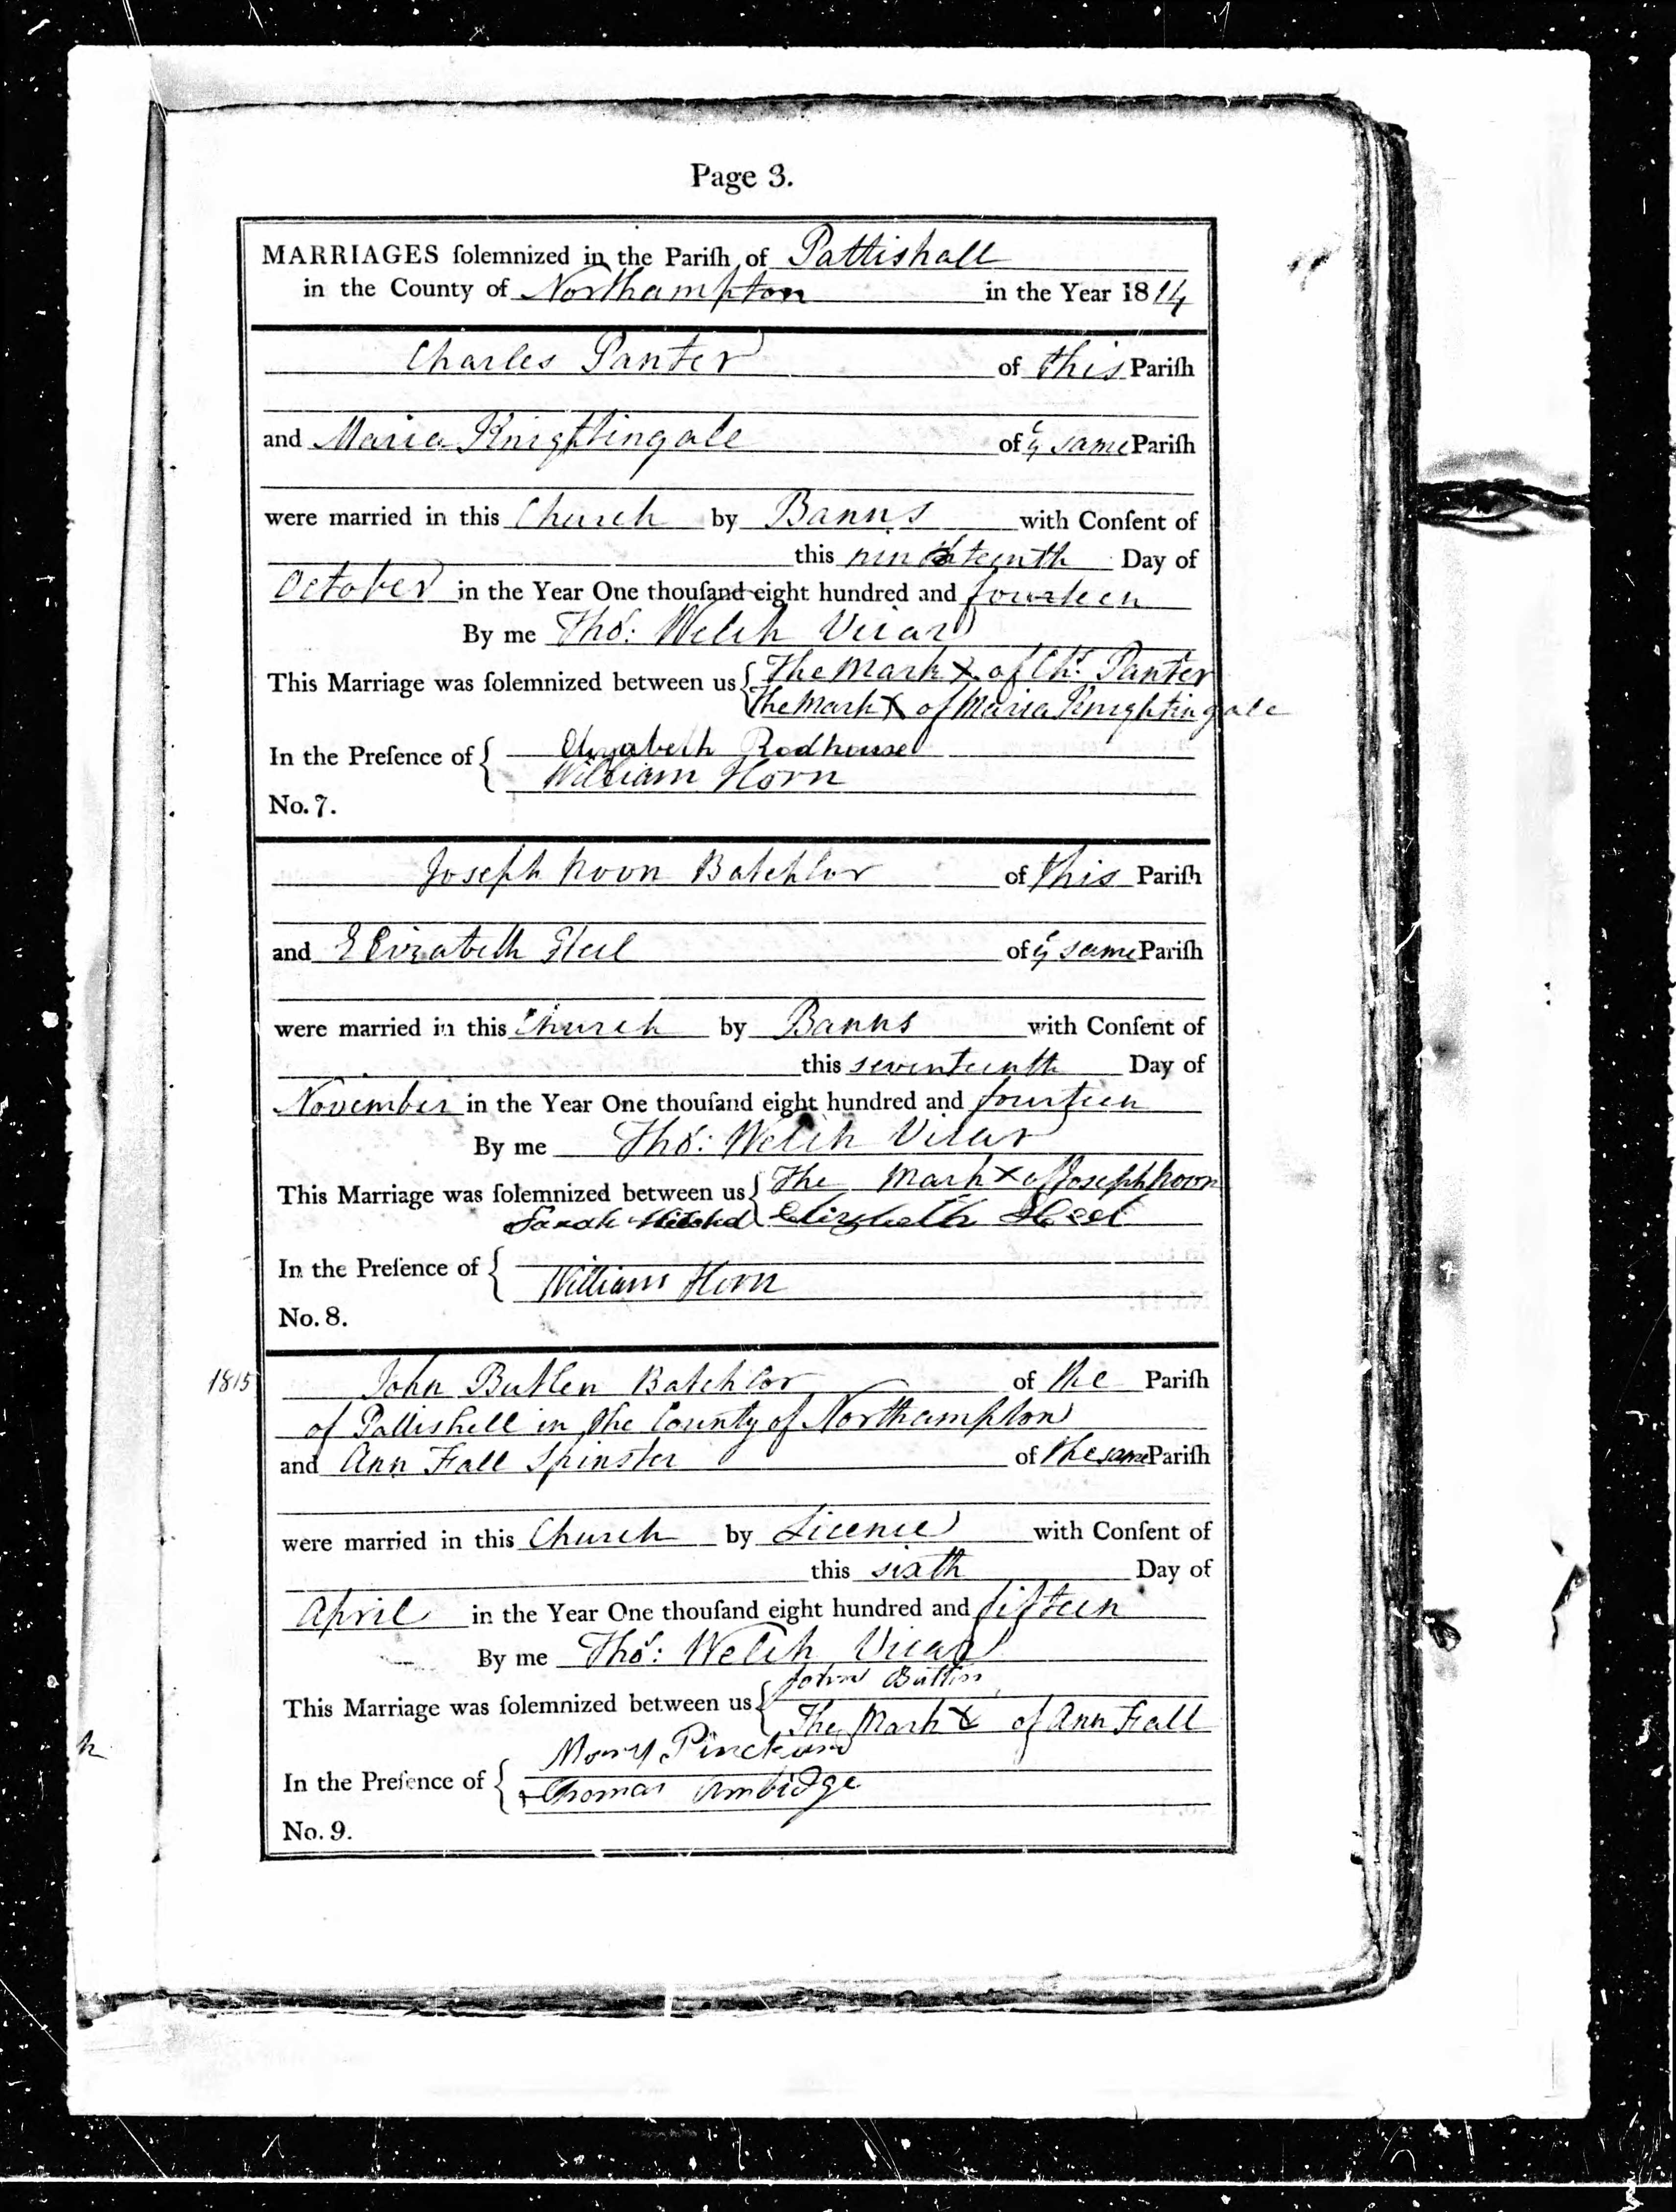 Page 3.
MARRIAGES ſolemnized in the Pariſh of Pattishall
in the County of Northampton in the Year 1814
Charles Panter of this Pariſh
and Maria Knightingale of yͤ same Pariſh
were married in this Church by Banns with Conſent of
this ninteenth Day of
October in the Year One thouſand eight hundred and fourteen
By me Thoˢ: Welch Vicar
This Marriage was ſolemnized between us { The Mark X of Chˢ. Panter
The Mark X of Maria Knightingale
In the Preſence of { Elizabeth Rodhouse
William Horn
No. 7.
Joseph Noon Batchlor of this Pariſh
and Elizabeth Steel of yͤ same Pariſh
were married in this Church by Banns with Conſent of
this seventeenth Day of
November in the Year One thouſand eight hundred and fourteen
By me Thoˢ: Welch Vicar
This Marriage was ſolemnized between us { The Mark X of Joseph Noon
Sarah Elizabeth Steel
In the Preſence of {
William Horn
No. 8.
1815
John Butlen Batchlor of the Pariſh
of Pattishell in the County of Northampton
and Ann Fall Spinster of the same Pariſh
were married in this Church by Licence with Conſent of
this sixth Day of
April in the Year One thouſand eight hundred and fifteen
By me Thoˢ: Welch Vicar
This Marriage was ſolemnized between us { John Butlin
The Mark X of Ann Fall
Mary Pinckard
In the Preſence of { Thomas Ambidge
No. 9.